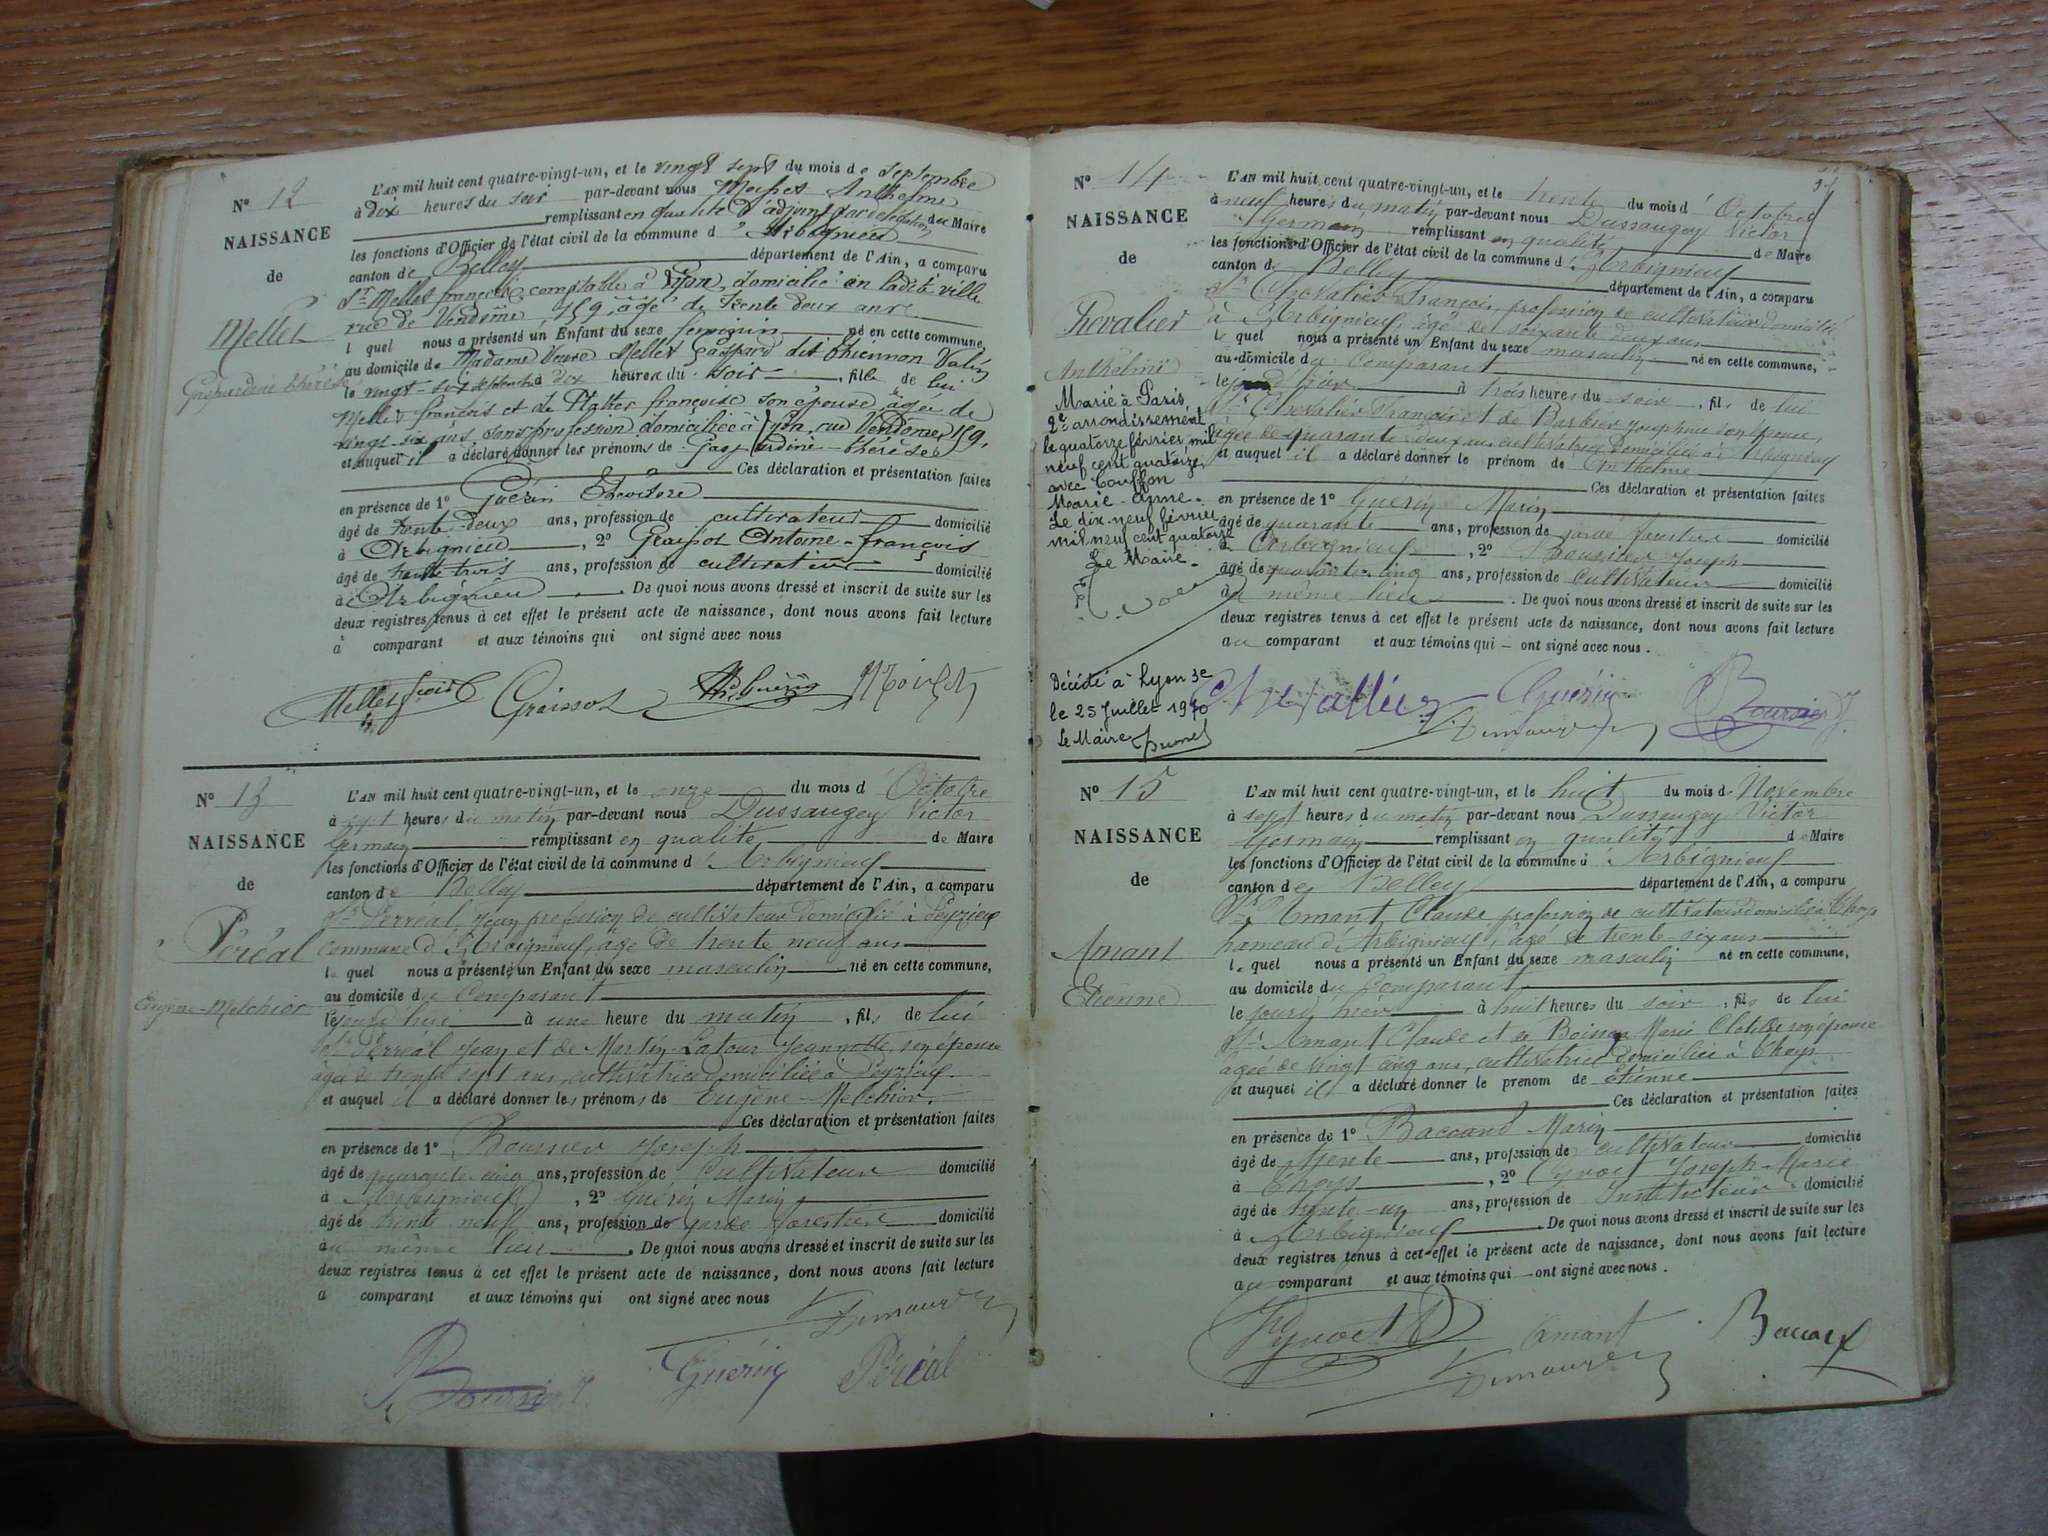 N° 12
NAISSANCE
de
Mellet
Gaspardine Thérèse
L'AN mil huit cent quatre-vingt-un, et le vingt sept du mois de Septembre
à dix heures du soir par-devant nous Anthelme
remplissant en qualité d'adjoint par délégation du Maire
les fonctions d'Officier de l'état civil de la commune d'Arbignieu
canton de Belley département de l'Ain, a comparu
Sr Mellet françois, comptable à Lyon, domicilié en ladite ville
rue de Vendôme, 159, âgé de trente deux ans
lequel nous a présenté un Enfant du sexe féminin né en cette commune,
au domicile de Madame Veuve Mellet Gaspard dit thiennon
le vingt six septembre à dix heures du soir, fille de lui
Mellet françois et de Platter françoise son épouse âgée de
vingt-six ans, sans profession domiciliée à Lyon, rue Vendôme, 159,
et auquel il a déclaré donner les prénoms de Gaspardine-thérèse
Ces déclaration et présentation faites
en présence de 1° Guérin Théodore
âgé de trente-deux ans, profession de cultivateur domicilié
à Arbignieu, 2° Graissot Antoine-françois
âgé de trente trois ans, profession de cultivateur domicilié
à Arbignieu. De quoi nous avons dressé et inscrit de suite sur les
deux registres tenus à cet effet le présent acte de naissance, dont nous avons fait lecture
à comparant et aux témoins qui ont signé avec nous
Mellet Graissot Th. Guérin
N° 13
NAISSANCE
de
Péréal
Eugène-Melchior
L'AN mil huit cent quatre-vingt-un, et le onze du mois d'Octobre
à sept heures du matin par-devant nous Dussaugey Victor
Germain remplissant en qualité de Maire
les fonctions d'Officier de l'état civil de la commune d'Arbignieu
canton de Belley département de l'Ain, a comparu
Sr Perréal Jean profession de cultivateur domicilié à Peyzieu
commune d'Arbignieu, âgé de trente neuf ans
lequel nous a présenté un Enfant du sexe masculin né en cette commune,
au domicile du Comparant
le jourd'hui à une heure du matin, fils de lui
Sr Perréal Jean et de Martin-Latour Jeannette, son épouse
âgée de trente sept ans, cultivatrice domiciliée à Peyzieu.
et auquel il a déclaré donner les prénoms de Eugène-Melchior.
Ces déclaration et présentation faites
en présence de 1° Boursier Joseph
âgé de quarante cinq ans, profession de Cultivateur domicilié
à Arbignieu, 2° Guérin Marin
âgé de trente neuf ans, profession de garde forestier domicilié
au même lieu. De quoi nous avons dressé et inscrit de suite sur les
deux registres tenus à cet effet le présent acte de naissance, dont nous avons fait lecture
a comparant et aux témoins qui ont signé avec nous
Boursier J. Guérin Péréal
N° 14
NAISSANCE
de
Chevalier
Anthelme
Marié à Paris
2e arrondissement
le quatorze février mil
neuf cent quatorze
avec Couffon
Marie-Anne.
Le dix-neuf février
mil neuf cent quatorze
Le Maire.
Décédé à Lyon 3e
le 25 Juillet 1970
Le Maire
L'AN mil huit cent quatre-vingt-un, et le trente du mois d'Octobre
à neuf heures du matin par-devant nous Dussaugey Victor
Germain remplissant en qualité de Maire
les fonctions d'Officier de l'état civil de la commune d'Arbignieu
canton de Belley département de l'Ain, a comparu
Sr Chevalier François, profession de cultivateur domicilié
à Arbignieu, âgé de soixante deux ans
lequel nous a présenté un Enfant du sexe masculin né en cette commune,
au domicile du Comparant
le jour d'hier à trois heures du soir, fils de lui
Sr Chevalier François et de Barbier Joséphine son épouse,
âgée de quarante deux ans cultivatrice domiciliée à Arbignieu
et auquel il a déclaré donner le prénom de Anthelme
Ces déclaration et présentation faites
en présence de 1° Guérin Marin
âgé de quarante ans, profession de garde forestier domicilié
à Arbignieu, 2° Boursier Joseph
âgé de quarante cinq ans, profession de Cultivateur domicilié
au même lieu. De quoi nous avons dressé et inscrit de suite sur les
deux registres tenus à cet effet le présent acte de naissance, dont nous avons fait lecture
au comparant et aux témoins qui - ont signé avec nous.
Chevallier Guérin Boursier J.
N° 15
NAISSANCE
de
Amant
Etienne
L'AN mil huit cent quatre-vingt-un, et le huit du mois de Novembre
à sept heures du matin par-devant nous Dussaugey Victor
Germain remplissant en qualité de Maire
les fonctions d'Officier de l'état civil de la commune d'Arbignieu
canton de Belley département de l'Ain, a comparu
Sr Amant Claude profession de cultivateur domicilié à Thoys
hameau d'Arbignieu, âgé de trente-six ans
lequel nous a présenté un Enfant du sexe masculin né en cette commune,
au domicile du Comparant
le jour d'hier à huit heures du soir, fils de lui
Sr Amant Claude et de Boisson Marie Clotilde son épouse
âgée de vingt cinq ans, cultivatrice domiciliée à Thoys
et auquel il a déclaré donner le prenom de Etienne
Ces déclaration et présentation faites
en présence de 1° Baccard Marin
âgé de trente ans, profession de cultivateur domicilié
à Thoys, 2° Joseph-Marie
âgé de trente-un ans, profession de Instituteur domicilié
à Arbignieu. De quoi nous avons dressé et inscrit de suite sur les
deux registres tenus à cet effet le présent acte de naissance, dont nous avons fait lecture
au comparant et aux témoins qui - ont signé avec nous.
Amant